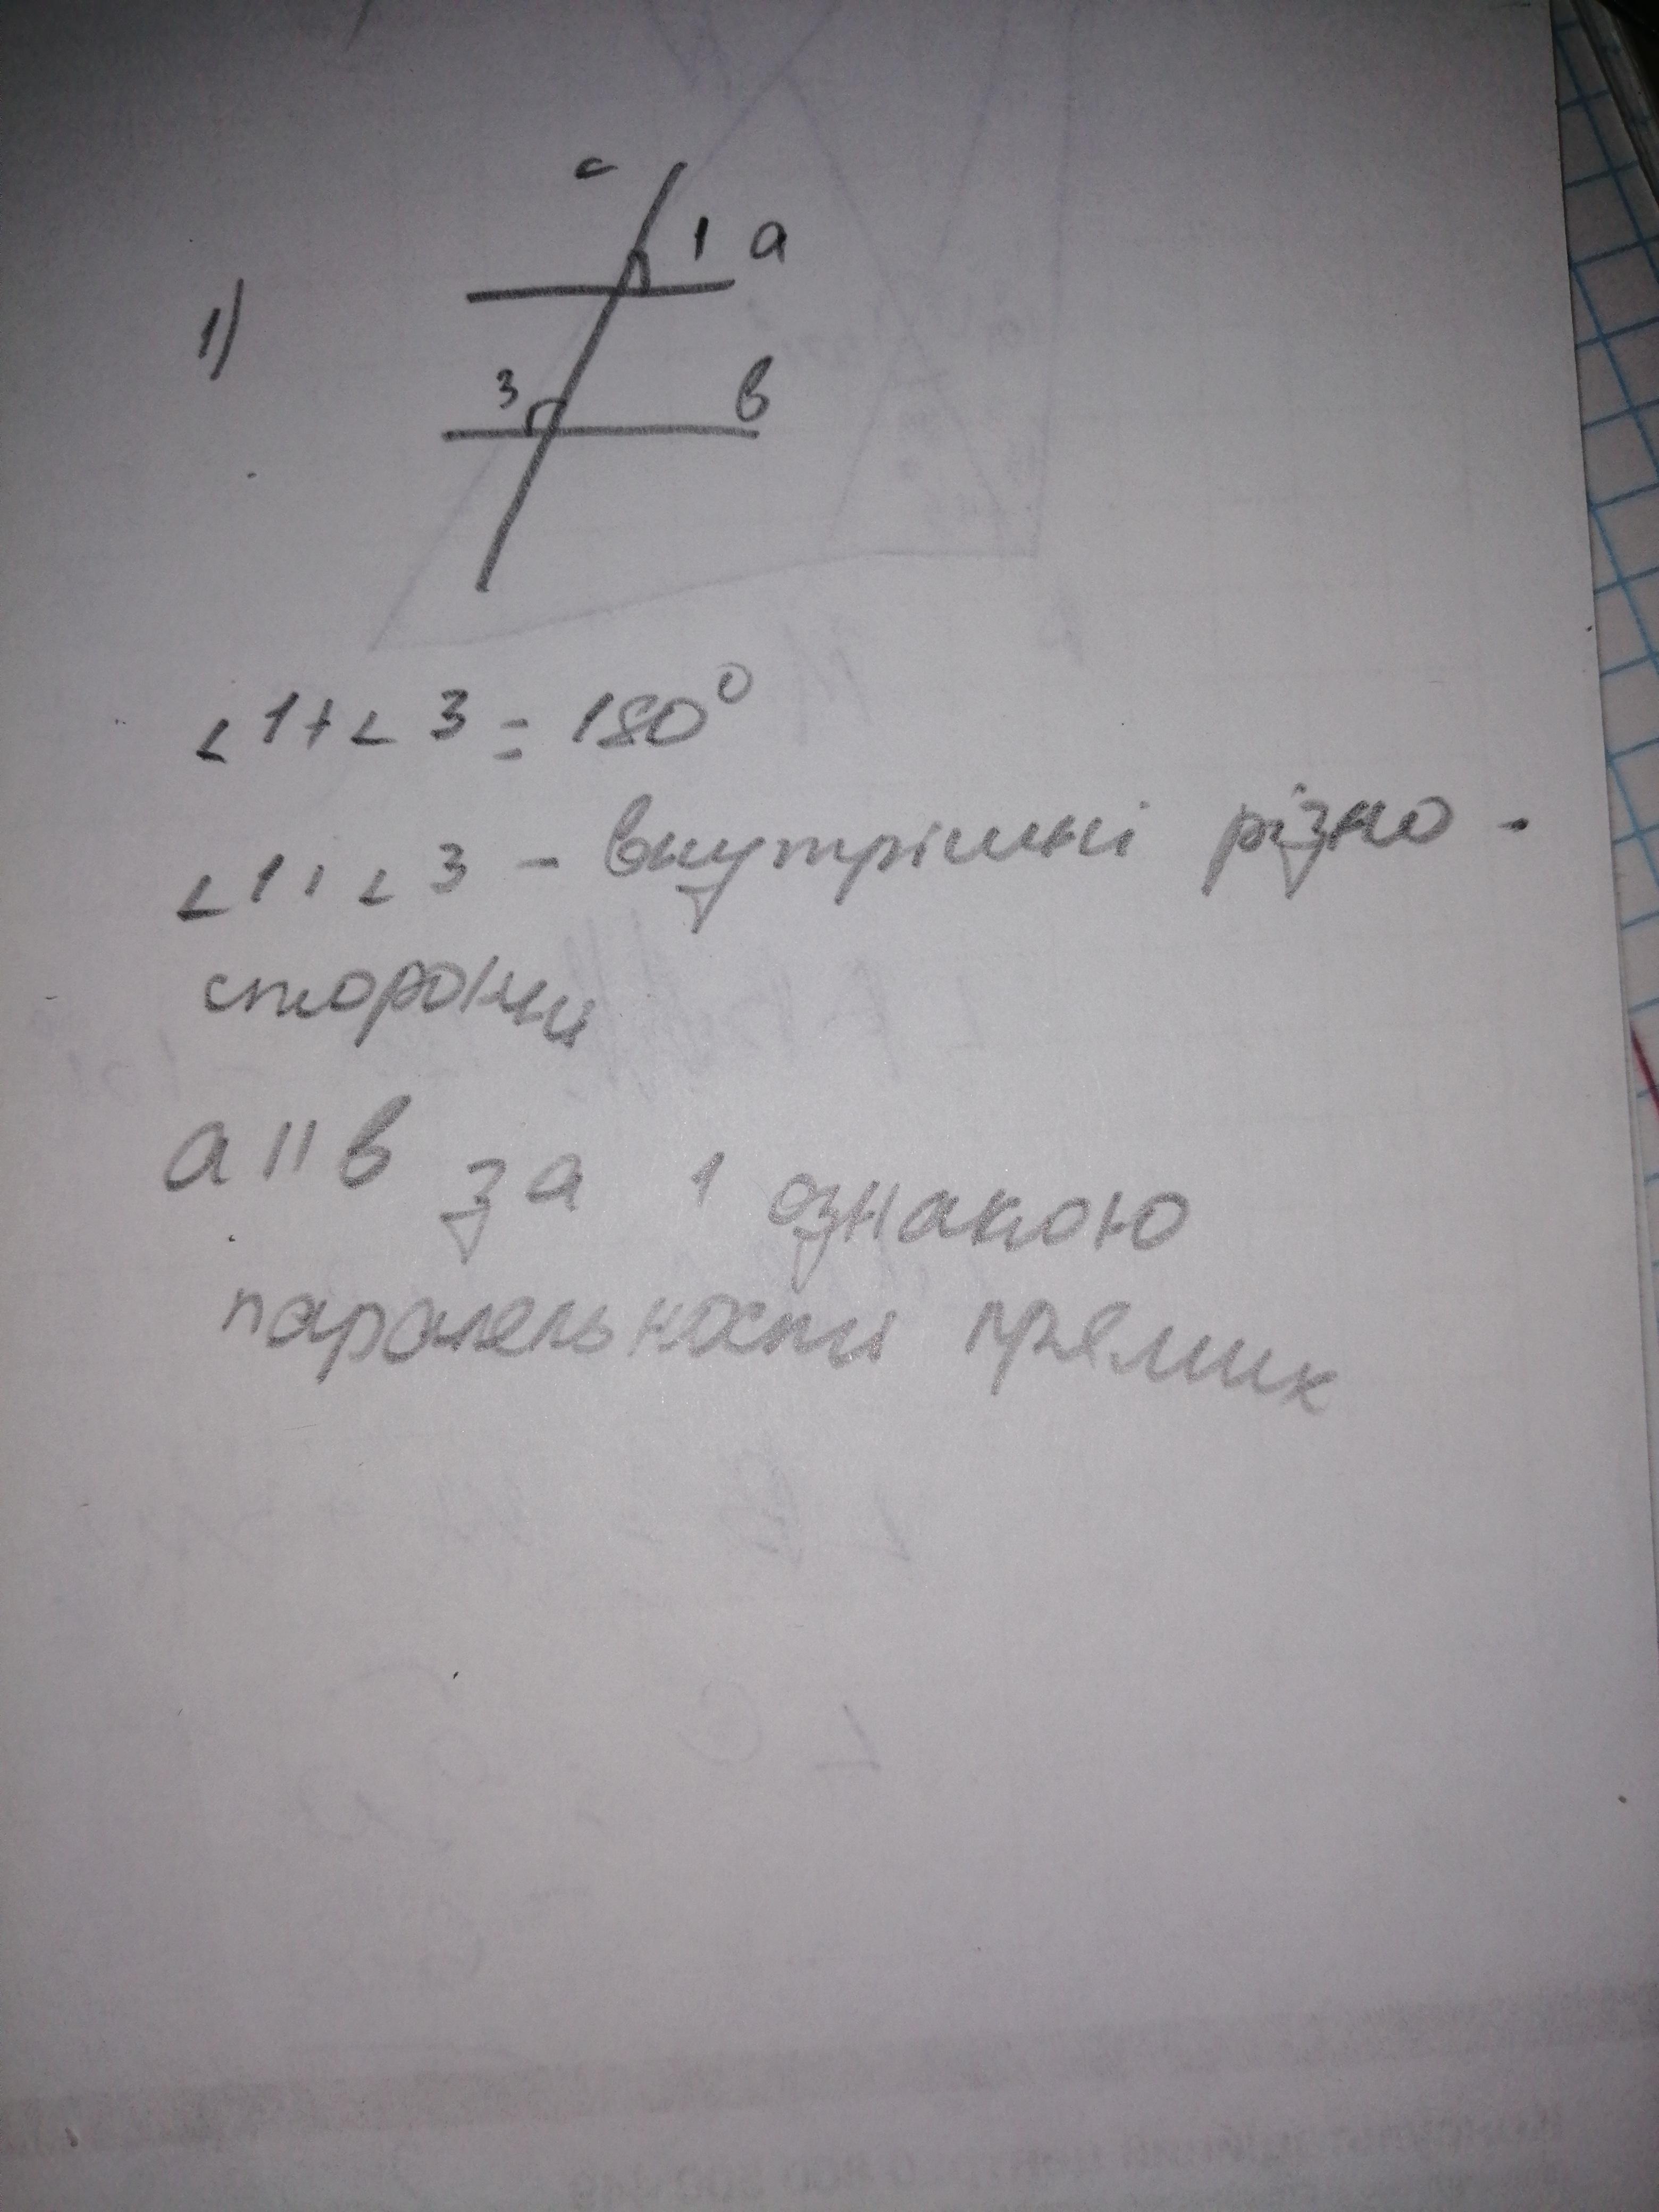 c
1 a
1)
3 в
∠1+∠3=180°
∠1 і ∠3 - внутрішні різно-
сторонні
a||в за 1 ознакою
паралельності прямих